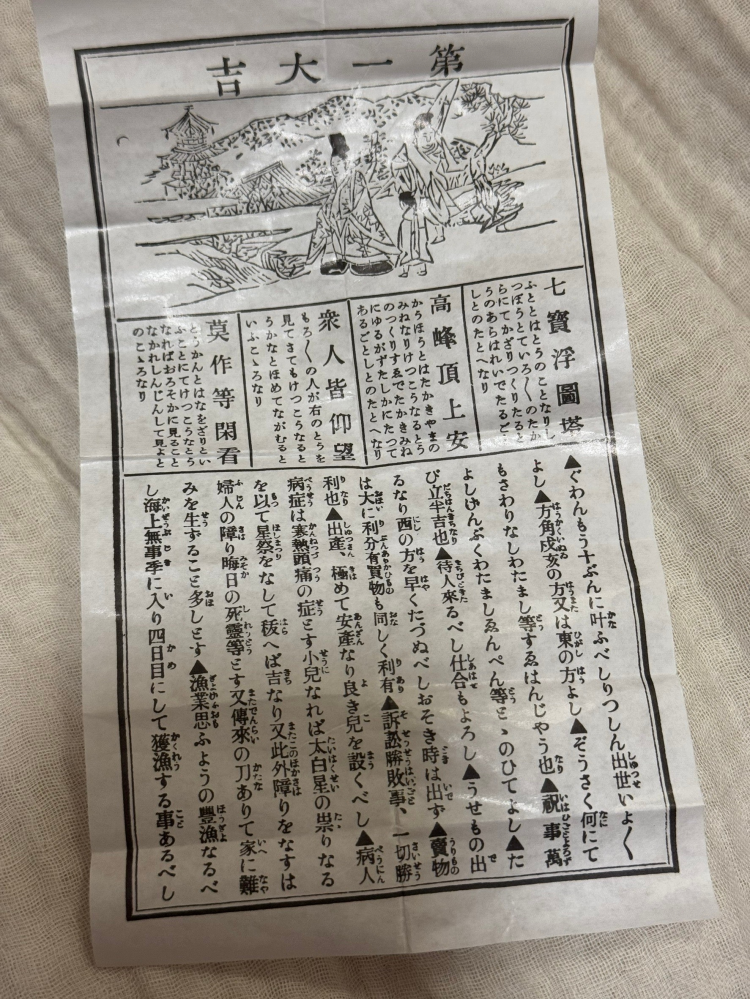 第一大吉
七寳浮圖塔
ふととはとうのことなりし
つぽうとていろ〳〵のたか
らにてかざりつくりたると
うのあらはれいでたるごと
しとのたとへなり
高峰頂上安
かうほうとはたかきやまの
みねなりけつこうなるとう
のつくりすゑでたかきみね
にゆるがずたしかにたつて
あるごとしとのたとへなり
衆人皆仰望
もろ〳〵の人が右のとうを
見てさてもけつこうなると
うかなとほめてながむると
いふこゝろなり
莫作等閑看
とうかんとはなをざりとい
ふことにてけつこうなとう
なればおろそかに見ること
なかれしんじんして見よと
のこゝろなり
▲ぐわんもう十ぶんに叶ふべしりつしん出世いよ〳〵
よし▲方角戍亥の方又は東の方よし▲ぞうさく何にて
もさわりなしわたまし等するゑはんじやう也▲祝事萬
よしげんぷくわたましゑんぺん等とゝのひてよし▲た
び立半吉也▲待人來るべし仕合もよろし▲うせもの出
るなり酉の方を早くたづぬべしおそき時は出ず▲賣物
は大に利分有買物も同しく利有▲訴訟勝敗事、一切勝
利也▲出產、極めて安產なり良き兒を設くべし▲病人
病症は寒熱頭痛の症とす小兒なれば太白星の祟りなる
を以て星祭をなして祓へば吉なり又此外障りをなすは
婦人の障り晦日の死靈等とす又傳來の刀ありて家に難
みを生ずること多しとす▲漁業思ふようの豐漁なるべ
し海上無事季に入り四日目にして獲漁する事あるべし